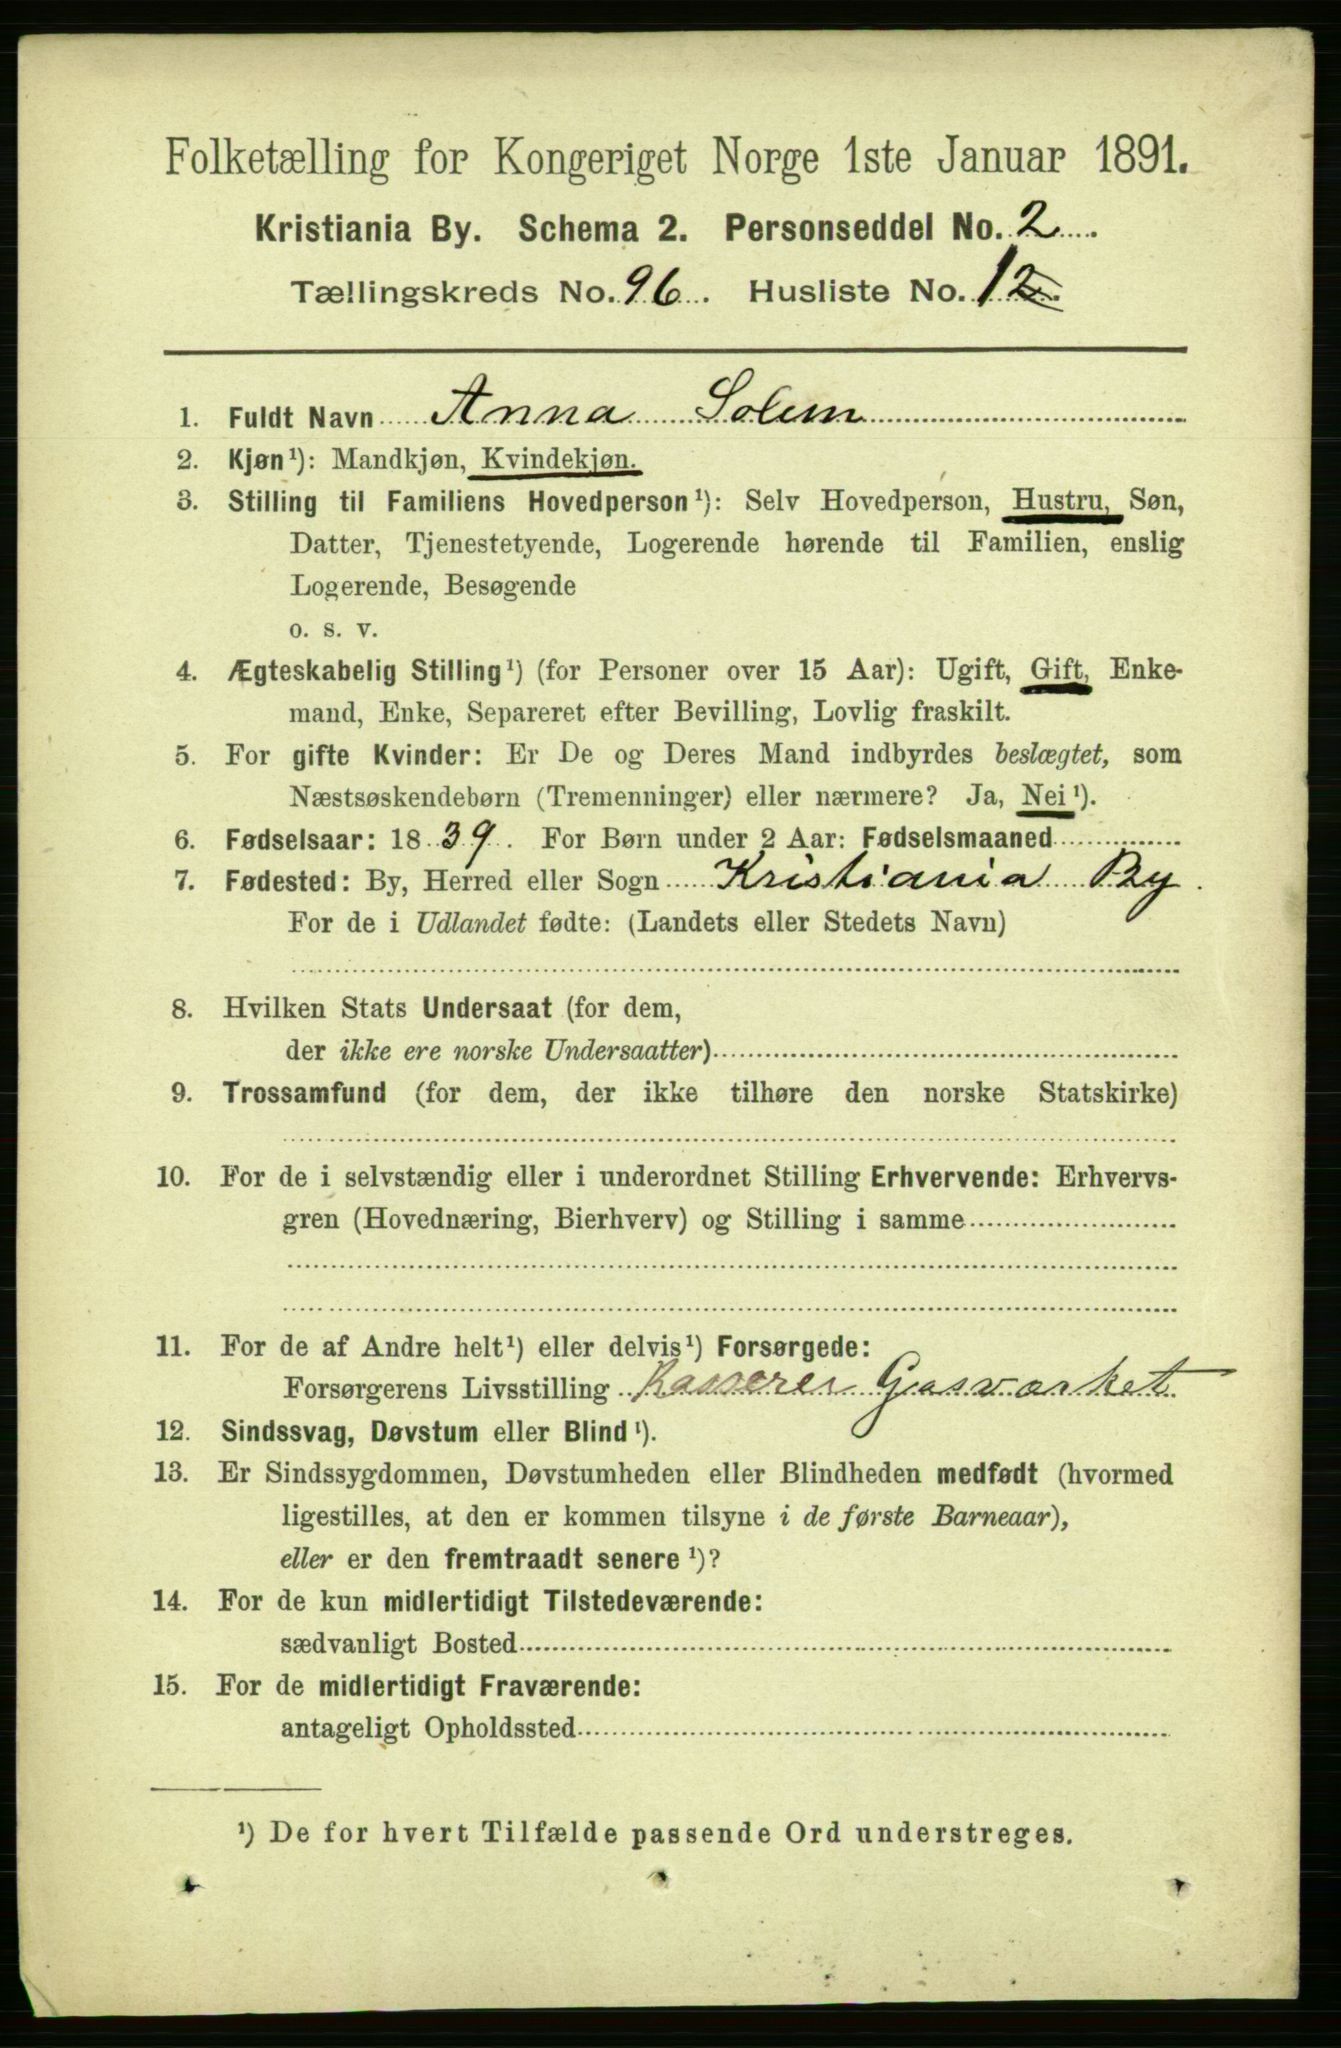 Folketælling for Kongeriget Norge 1ste Januar 1891.
Kristiania By. Schema 2. Personseddel No. 2
Tællingskreds No. 96. Husliste No. 12.
1. Fuldt Navn Anna Solem
2. Kjøn¹): Mandkjøn, Kvindekjøn.
3. Stilling til Familiens Hovedperson¹): Selv Hovedperson, Hustru, Søn,
Datter, Tjenestetyende, Logerende hørende til Familien, enslig
Logerende, Besøgende
o. s. v.
4. Ægteskabelig Stilling¹) (for Personer over 15 Aar): Ugift, Gift, Enke-
mand, Enke, Separeret efter Bevilling, Lovlig fraskilt.
5. For gifte Kvinder: Er De og Deres Mand indbyrdes beslægtet, som
Næstsøskendebørn (Tremenninger) eller nærmere? Ja, Nei¹).
6. Fødselsaar: 1839. For Børn under 2 Aar: Fødselsmaaned
7. Fødested: By, Herred eller Sogn Kristiania By.
For de i Udlandet fødte: (Landets eller Stedets Navn)
8. Hvilken Stats Undersaat (for dem,
der ikke ere norske Undersaatter)
9. Trossamfund (for dem, der ikke tilhøre den norske Statskirke)
10. For de i selvstændig eller i underordnet Stilling Erhvervende: Erhvervs-
gren (Hovednæring, Bierhverv) og Stilling i samme
11. For de af Andre helt¹) eller delvis¹) Forsørgede:
Forsørgerens Livsstilling Kasserer Gasværket
12. Sindssvag, Døvstum eller Blind¹).
13. Er Sindssygdommen, Døvstumheden eller Blindheden medfødt (hvormed
ligestilles, at den er kommen tilsyne i de første Barneaar),
eller er den fremtraadt senere¹)?
14. For de kun midlertidigt Tilstedeværende:
sædvanligt Bosted
15. For de midlertidigt Fraværende:
antageligt Opholdssted
¹) De for hvert Tilfælde passende Ord understreges.